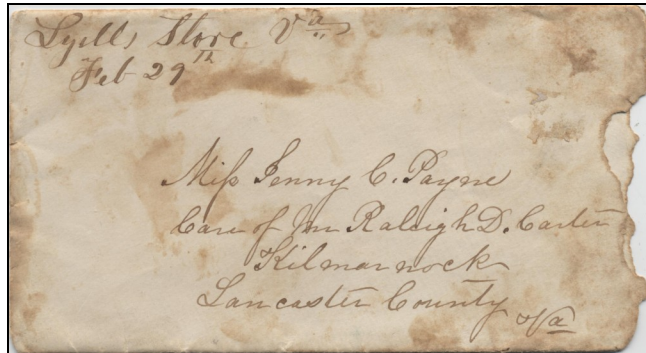 Lyells Store Va
Feb 29th
Miss Jenny C. Payne
Care of Mr Raleigh D. Carter
Kilmarnock
Lancaster County
Va